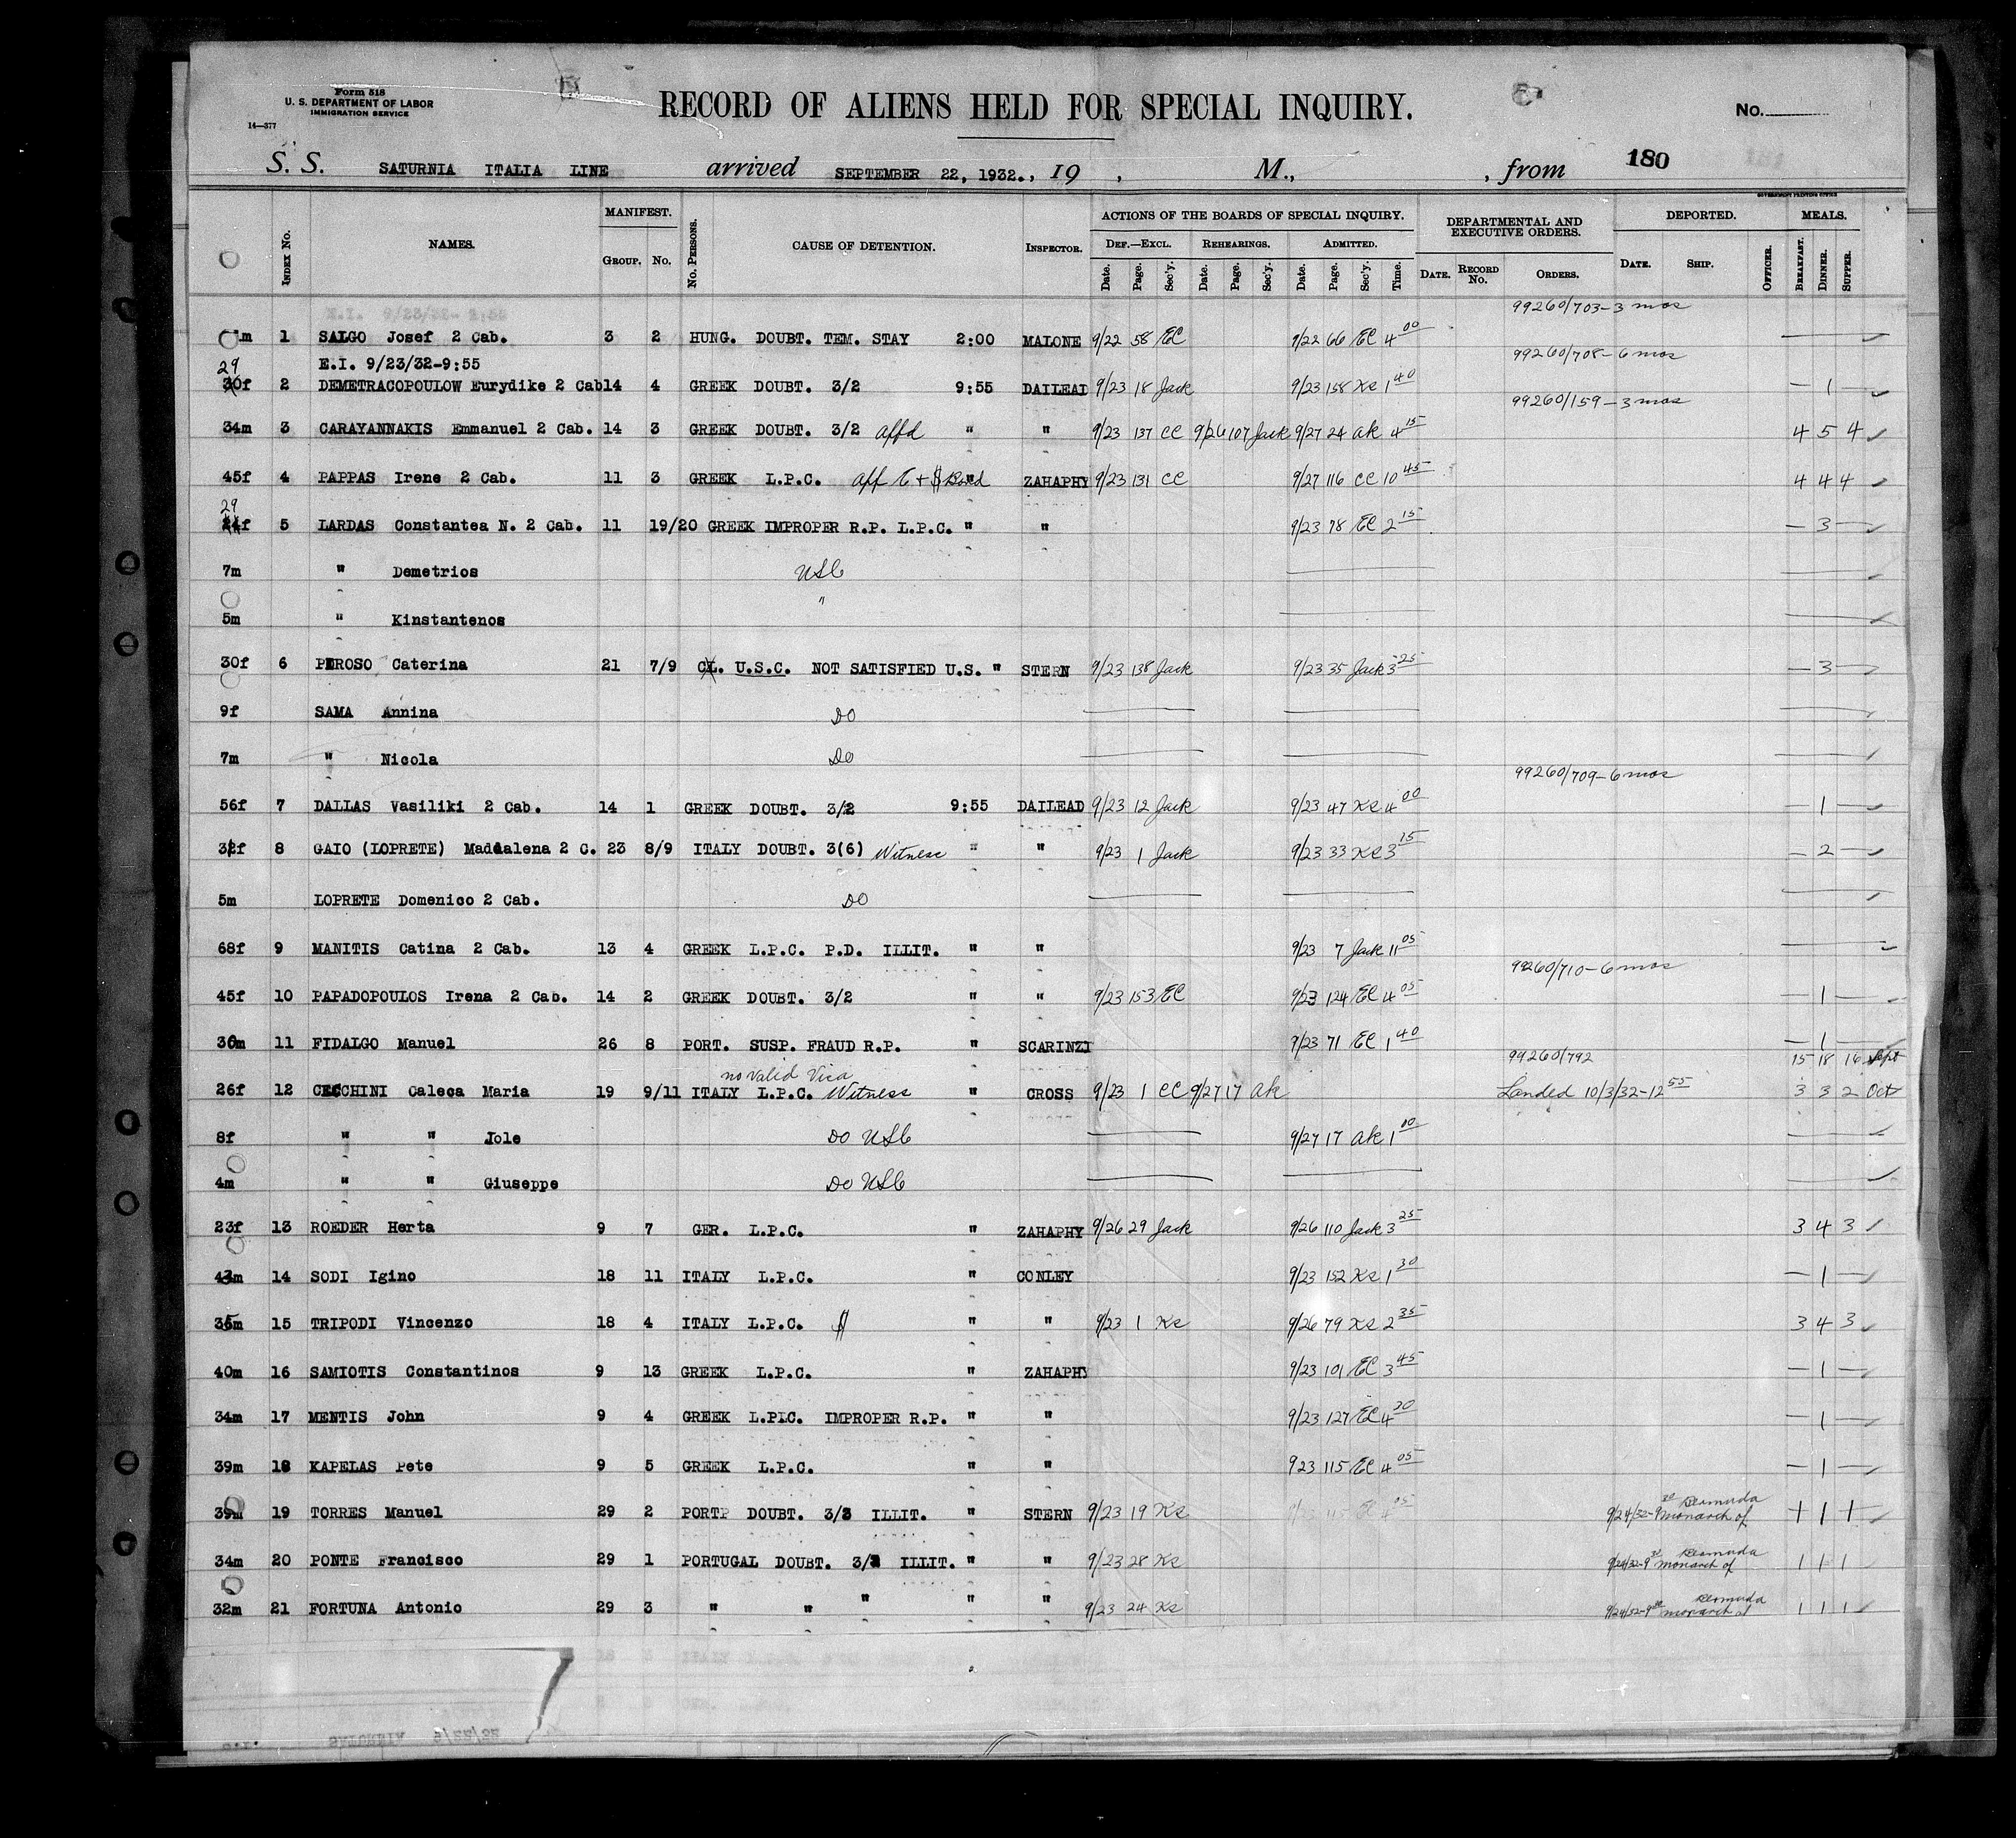 Form 518
U. S. DEPARTMENT OF LABOR
IMMIGRATION SERVICE
14—377
RECORD OF ALIENS HELD FOR SPECIAL INQUIRY.
No.
S. S. SATURNIA ITALIA LINE arrived SEPTEMBER 22, 1932., 19 , M., , from 180
GOVERNMENT PRINTING OFFICE
Index No. NAMES. MANIFEST. Group. No. No. Persons. CAUSE OF DETENTION. Inspector. ACTIONS OF THE BOARDS OF SPECIAL INQUIRY. DEPARTMENTAL AND EXECUTIVE ORDERS. DEPORTED. MEALS.
Def.—Excl. Rehearings. Admitted.
Date. Page. Sec'y. Date. Page. Sec'y. Date. Page. Sec'y. Time. Date. Record No. Orders. Date. Ship. Officer. Breakfast. Dinner. Supper.
99260/703-3 mos
1 SALGO Josef 2 Cab. 3 2 HUNG. DOUBT. TEM. STAY 2:00 MALONE 9/22 58 EC 9/22 66 EC 4 00
E.I. 9/23/32-9:55 99260/708-6 mos
29
30f 2 DEMETRACOPOULOW Eurydike 2 Cab 14 4 GREEK DOUBT. 3/2 9:55 DAILEAD 9/23 18 Jack 9/23 158 Ks 1 40 — 1 —
99260/159-3 mos
34m 3 CARAYANNAKIS Emmanuel 2 Cab. 14 3 GREEK DOUBT. 3/2 affd " " 9/23 137 CC 9/26 107 Jack 9/27 24 ak 4 15 4 5 4
45f 4 PAPPAS Irene 2 Cab. 11 3 GREEK L.P.C. aff C + $ Bond " ZAHAPHY 9/23 131 CC 9/27 116 CC 10 45 4 4 4
29
5 LARDAS Constantea N. 2 Cab. 11 19/20 GREEK IMPROPER R.P. L.P.C. " " 9/23 78 EC 2 15 — 3 —
7m " Demetrios USC
5m " Kinstantenos "
30f 6 PEROSO Caterina 21 7/9 CL. U.S.C. NOT SATISFIED U.S. " STERN 9/23 138 Jack 9/23 35 Jack 3 25 — 3 —
9f SAMA Annina DO
7m " Nicola DO
99260/709-6 mos
56f 7 DALLAS Vasiliki 2 Cab. 14 1 GREEK DOUBT. 3/2 9:55 DAILEAD 9/23 12 Jack 9/23 47 Ks 4 00 — 1 —
32f 8 GAIO (LOPRETE) Maddalena 2 C. 23 8/9 ITALY DOUBT. 3(6) Witness " " 9/23 1 Jack 9/23 33 Ks 3 15 — 2 —
5m LOPRETE Domenico 2 Cab. DO
68f 9 MANITIS Catina 2 Cab. 13 4 GREEK L.P.C. P.D. ILLIT. " " 9/23 7 Jack 11 05
99260/710-6 mos
45f 10 PAPADOPOULOS Irena 2 Cab. 14 2 GREEK DOUBT. 3/2 " " 9/23 153 EC 9/23 124 EC 4 05 — 1 —
36m 11 FIDALGO Manuel 26 8 PORT. SUSP. FRAUD R.P. " SCARINZI 9/23 71 EC 1 40 — 1 —
no valid Visa 99260/792 15 18 16 Sept
26f 12 CECCHINI Caleca Maria 19 9/11 ITALY L.P.C. Witness " CROSS 9/23 1 CC 9/27 17 ak Landed 10/3/32-12 55 3 3 2 Oct
8f " " Iole DO USC 9/27 17 ak 1 00
4m " " Giuseppe DO USC
23f 13 ROEDER Herta 9 7 GER. L.P.C. " ZAHAPHY 9/26 29 Jack 9/26 110 Jack 3 25 3 4 3
43m 14 SODI Igino 18 11 ITALY L.P.C. " CONLEY 9/23 152 Ks 1 30 — 1 —
35m 15 TRIPODI Vincenzo 18 4 ITALY L.P.C. $ " " 9/23 1 Ks 9/26 79 Ks 2 35 3 4 3
40m 16 SAMIOTIS Constantinos 9 13 GREEK L.P.C. " ZAHAPHY 9/23 101 EC 3 45 — 1 —
34m 17 MENTIS John 9 4 GREEK L.PIC. IMPROPER R.P. " " 9/23 127 EC 4 20 — 1 —
39m 18 KAPELAS Pete 9 5 GREEK L.P.C. " " 923 115 EC 4 05 — 1 —
39m 19 TORRES Manuel 29 2 PORTP DOUBT. 3/3 ILLIT. " STERN 9/23 19 Ks 9/24/32-9 30 Monarch of Bermuda 1 1 1
34m 20 PONTE Francisco 29 1 PORTUGAL DOUBT. 3/2 ILLIT. " " 9/23 28 Ks 9/24/32-9 30 Monarch of Bermuda 1 1 1
32m 21 FORTUNA Antonio 29 3 " " " " " 9/23 24 Ks 9/24/32-9 30 Monarch of Bermuda 1 1 1